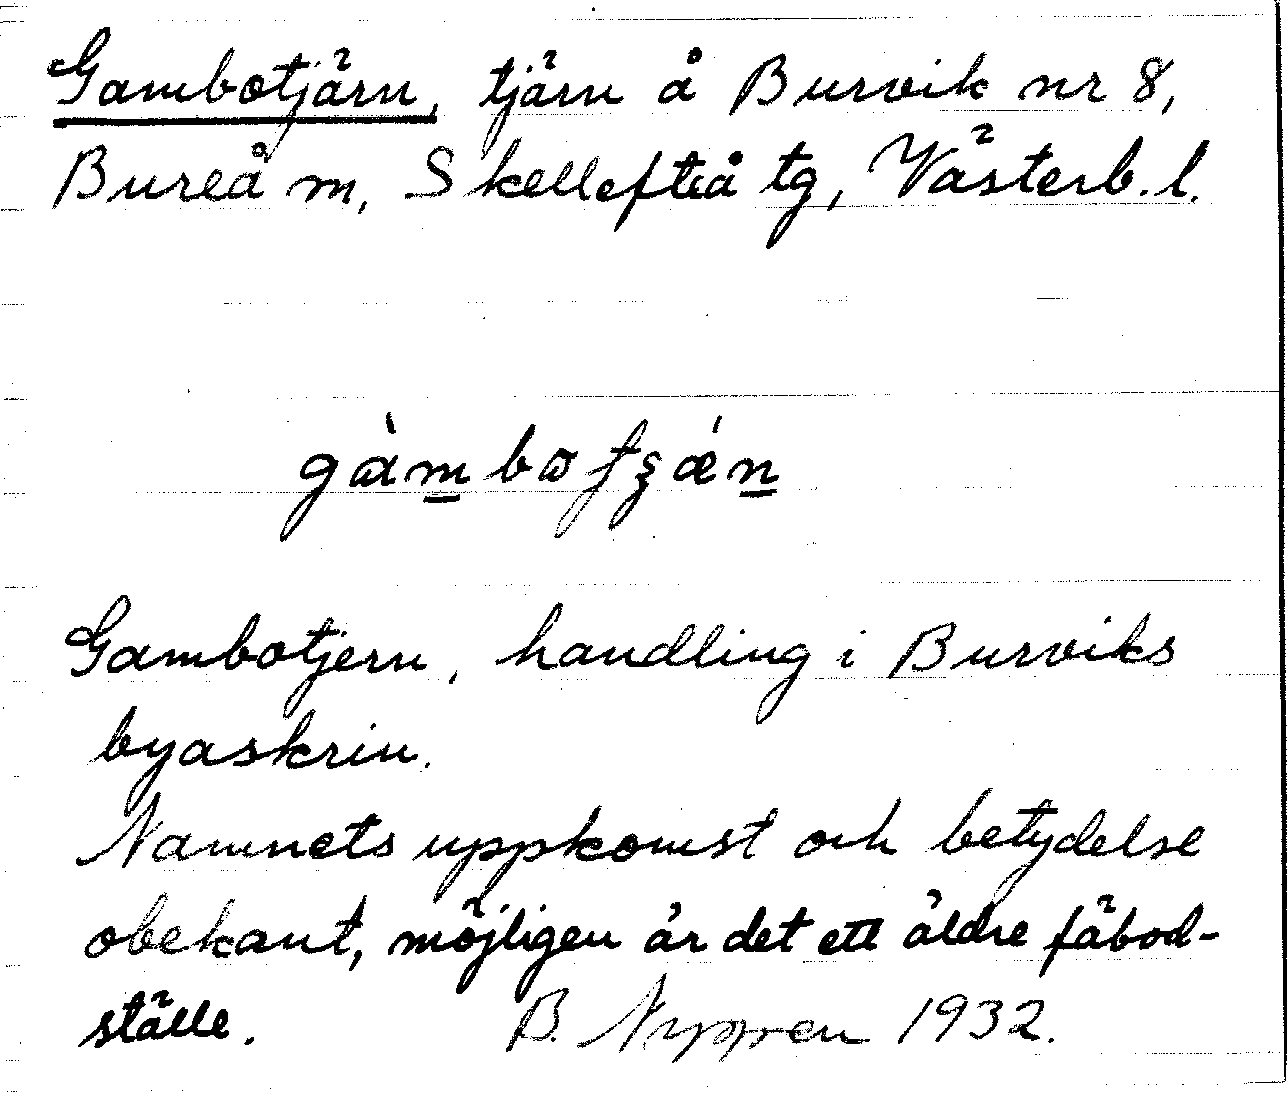 Gambotjärn, tjärn å Burvik nr 8,
Bureå m, Skellefteå tg, Västerb. l.
Gambotjern, handling i Burviks
byaskrin.
Namnets uppkomst och betydelse
obekant, möjligen är det ett äldre fäbod-
ställe. B. Nyppen 1932.